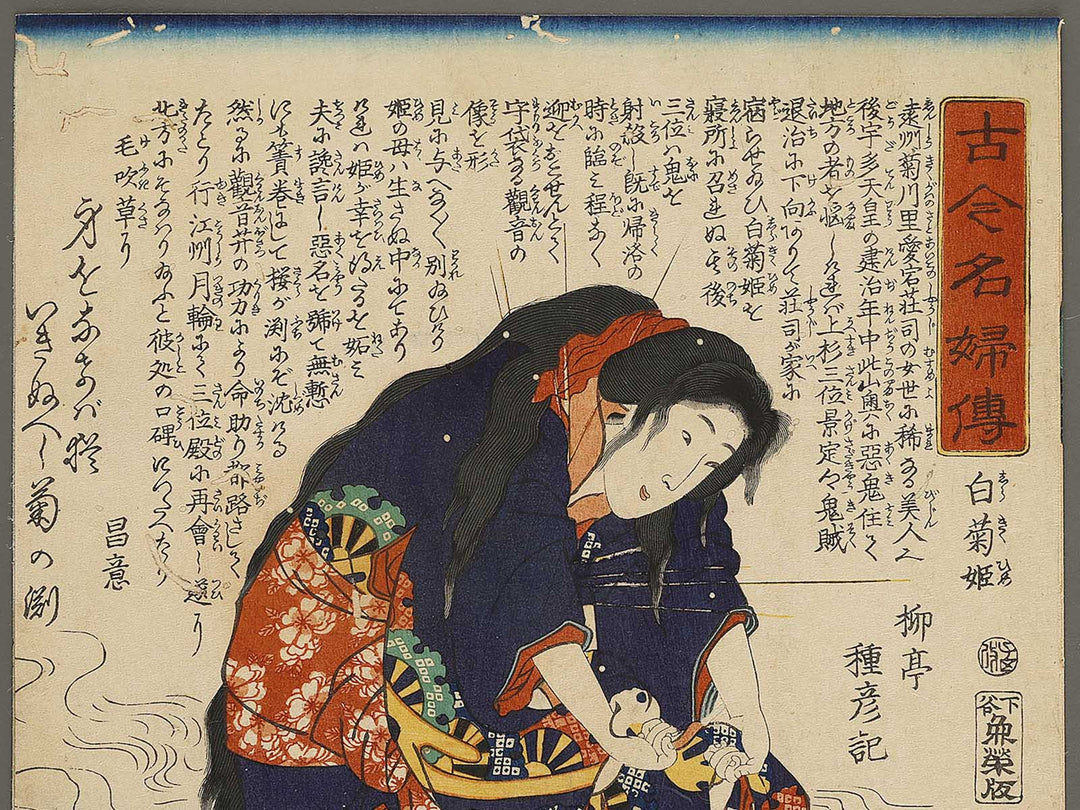 古今名婦傳
白菊姫
柳亭
種彦記
下谷
魚榮版
遠州菊川里愛宕荘司の女世に稀なる美人
後宇多天皇の建治年中此山奥に惡鬼住て
地方の者を悩しければ上杉三位景定鬼賊
退治に下向ありて荘司が家に
宿らせ給ひ白菊姫を
寝所に召れぬ其後
三位は鬼を
射殺し既に帰洛の
時に臨み程なく
迎をおこせんとて
守袋なる觀音の
像を形
見に与へ別給ひけり
姫の母は生さぬ中にてあり
ければ姫が幸を得たるを妬み
夫に讒言し惡名を號て無慙
にも簀巻にして桜が渕にぞ沈ける
然るに觀音𦬇の功力により命助り都路さして
たどり行江州月輪にて三位殿に再會し遂に
北方にそなはり給ふと彼処の口碑につたへたり
毛吹草に
身をなげば猶
いきぬべし菊の渕
昌意